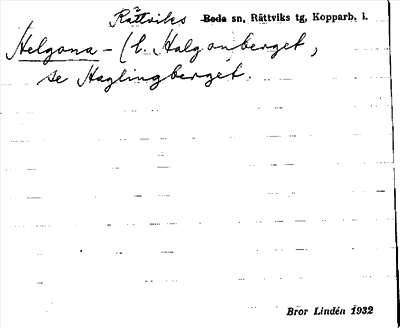 Rättviks Boda sn, Rättviks tg, Kopparb. l.
Helgona- (l. Halgonberget,
se Haglingberget.
Bror Lindén 1932